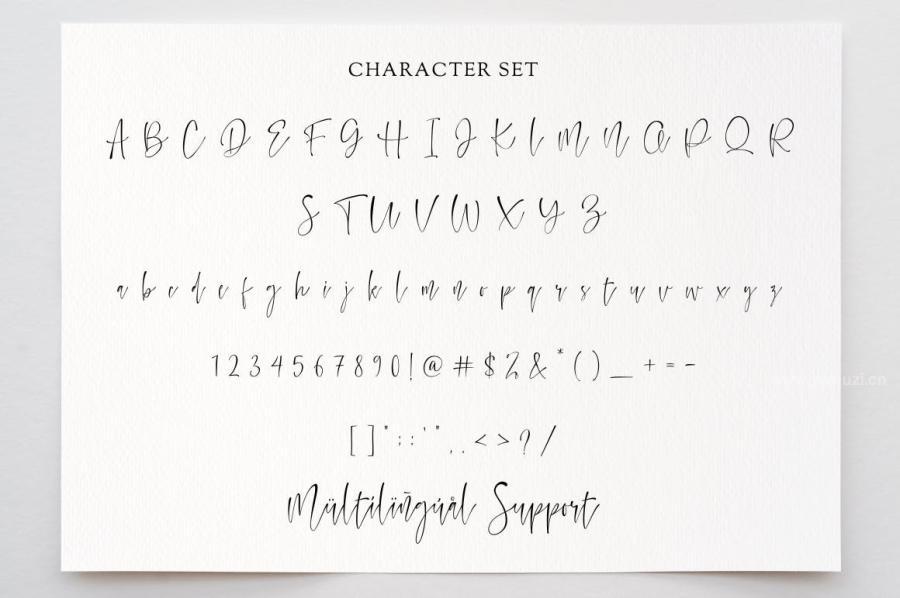 CHARACTER SET
A B C D E F G H I J K L M N O P Q R
S T U V W X Y Z
a b c d e f g h i j k l m n o p q r s t u v w x y z
1 2 3 4 5 6 7 8 9 0 ! @ # $ % & * ( ) _ + = -
[ ] " ; : ' " , . < > ? /
Mültilïñgúål Support